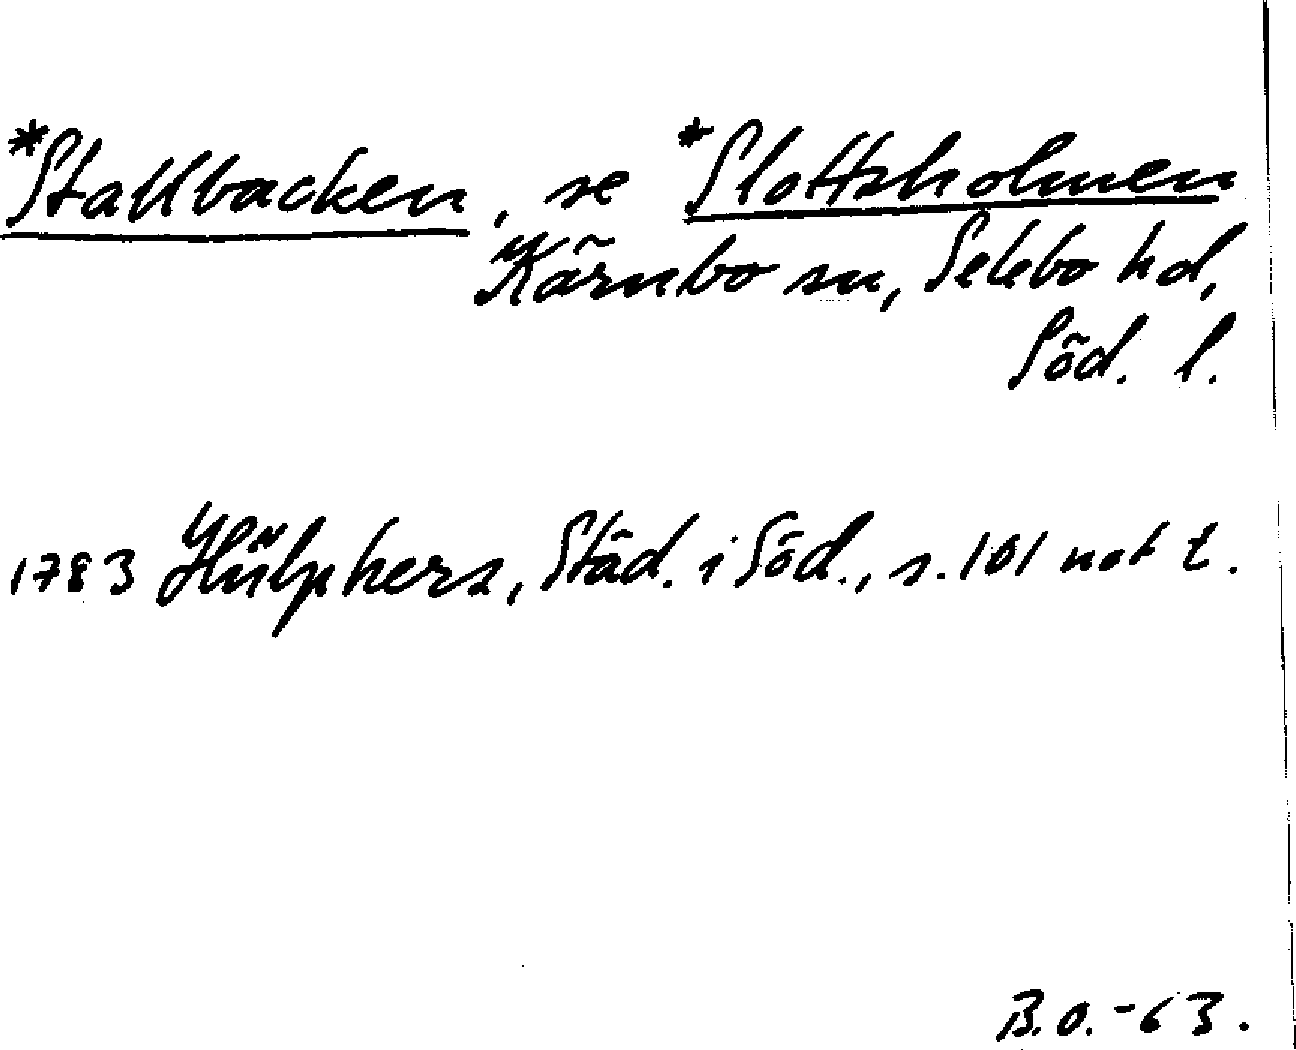 *Stallbacken, se *Slottsholmen
Kärnbo sn, Selebo hd,
Söd. l.
1783 Hülphers, Städ. i Söd., s. 101 not t.
B.O.-63.